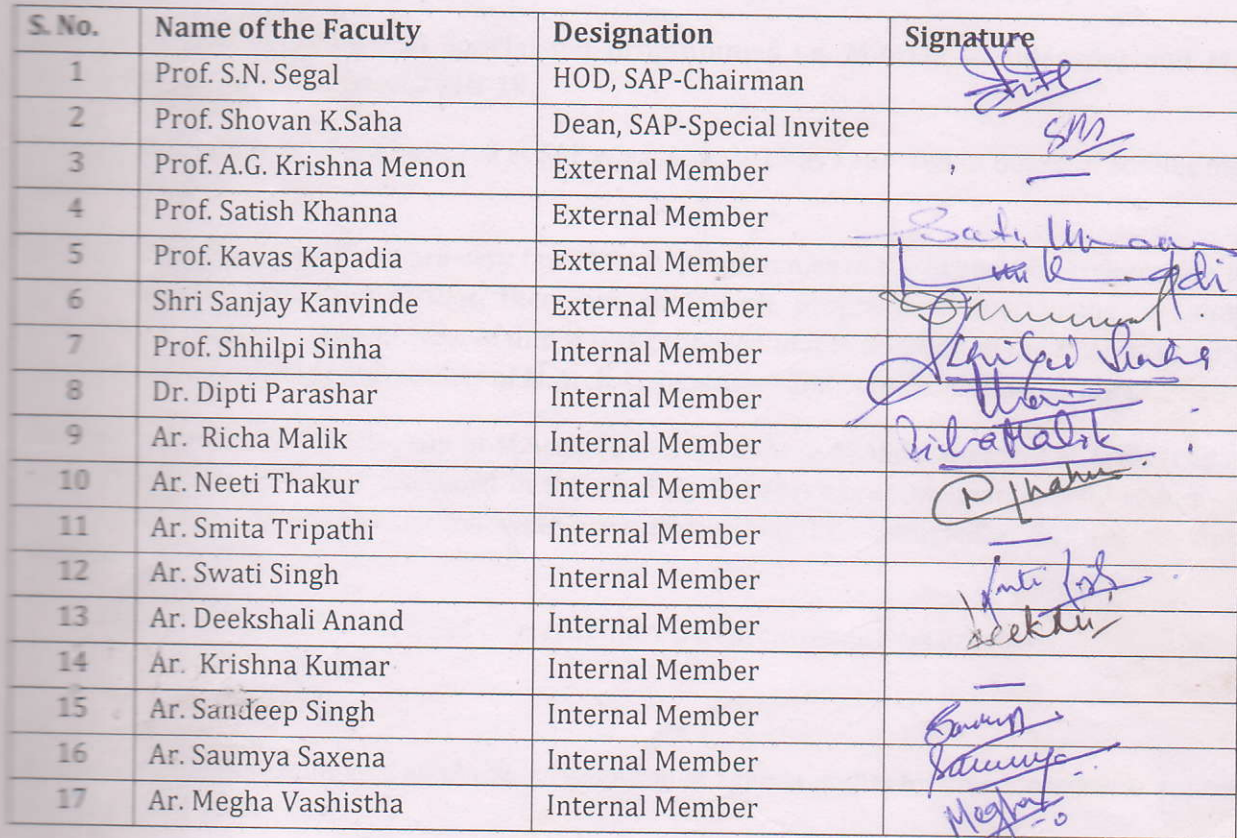 S. No. Name of the Faculty Designation Signature
1 Prof. S.N. Segal HOD, SAP-Chairman
2 Prof. Shovan K.Saha Dean, SAP-Special Invitee
3 Prof. A.G. Krishna Menon External Member
4 Prof. Satish Khanna External Member
5 Prof. Kavas Kapadia External Member
6 Shri Sanjay Kanvinde External Member
7 Prof. Shhilpi Sinha Internal Member Shhilpi Sinha
8 Dr. Dipti Parashar Internal Member
9 Ar. Richa Malik Internal Member Richa Malik
10 Ar. Neeti Thakur Internal Member
11 Ar. Smita Tripathi Internal Member —
12 Ar. Swati Singh Internal Member
13 Ar. Deekshali Anand Internal Member
14 Ar. Krishna Kumar Internal Member —
15 Ar. Sandeep Singh Internal Member
16 Ar. Saumya Saxena Internal Member Saumya
17 Ar. Megha Vashistha Internal Member Megha